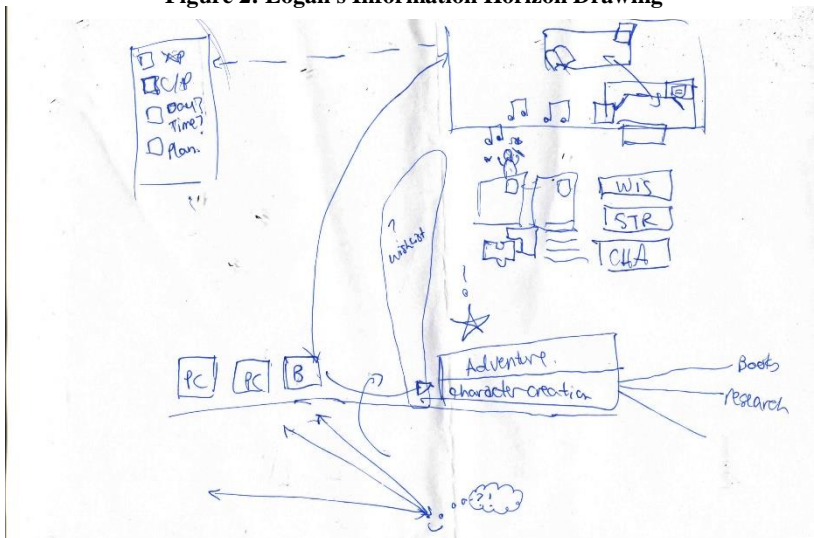 Figure 2: Logan's Information Horizon Drawing
XP
C/P
Day?
Time?
Plan.
?
wishlist
WIS
STR
CHA
PC
PC
B
Adventure.
character creation
Books
research
?!